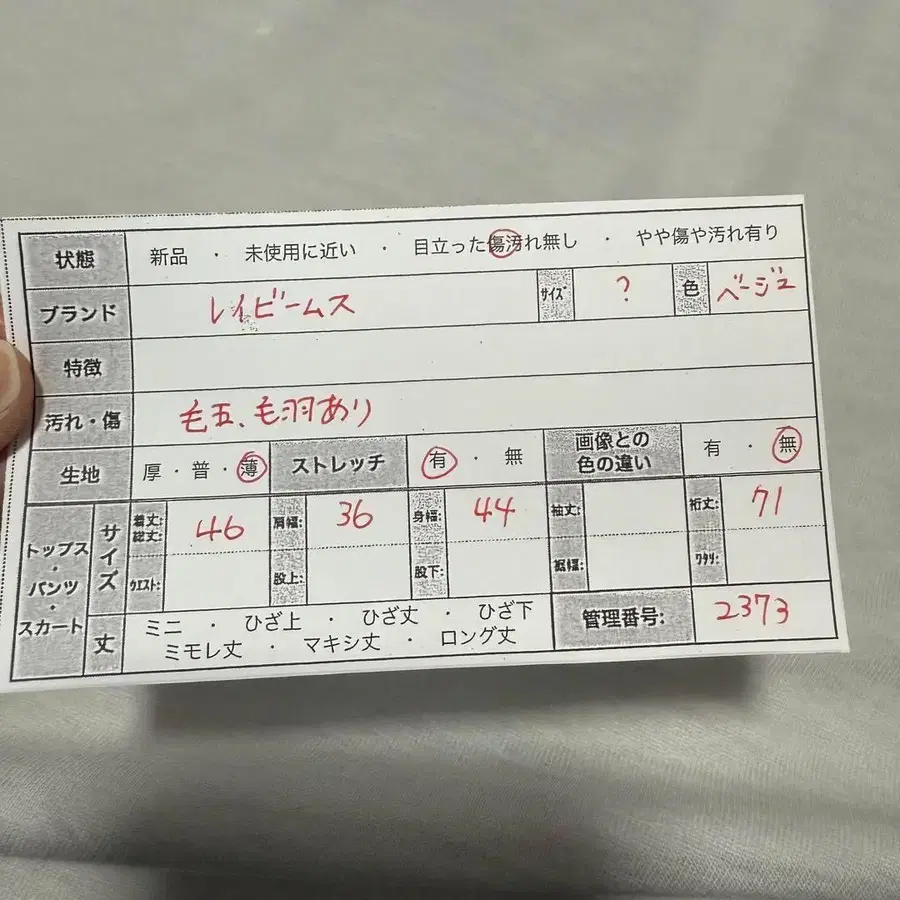 状態 新品 ・ 未使用に近い ・ 目立った傷汚れ無し ・ やや傷や汚れ有り
ブランド レイビームス サイズ ? 色 ベージュ
特徴
汚れ・傷 毛玉、毛羽あり
生地 厚・普・薄 ストレッチ 有 ・ 無 画像との色の違い 有 ・ 無
トップス・パンツ・スカート サイズ 着丈: 総丈: 46 肩幅: 36 身幅: 44 袖丈: 裄丈: 71
ウエスト: 股上: 股下: 裾幅: ワタリ:
丈 ミニ ・ ひざ上 ・ ひざ丈 ・ ひざ下
ミモレ丈 ・ マキシ丈 ・ ロング丈
管理番号: 2373